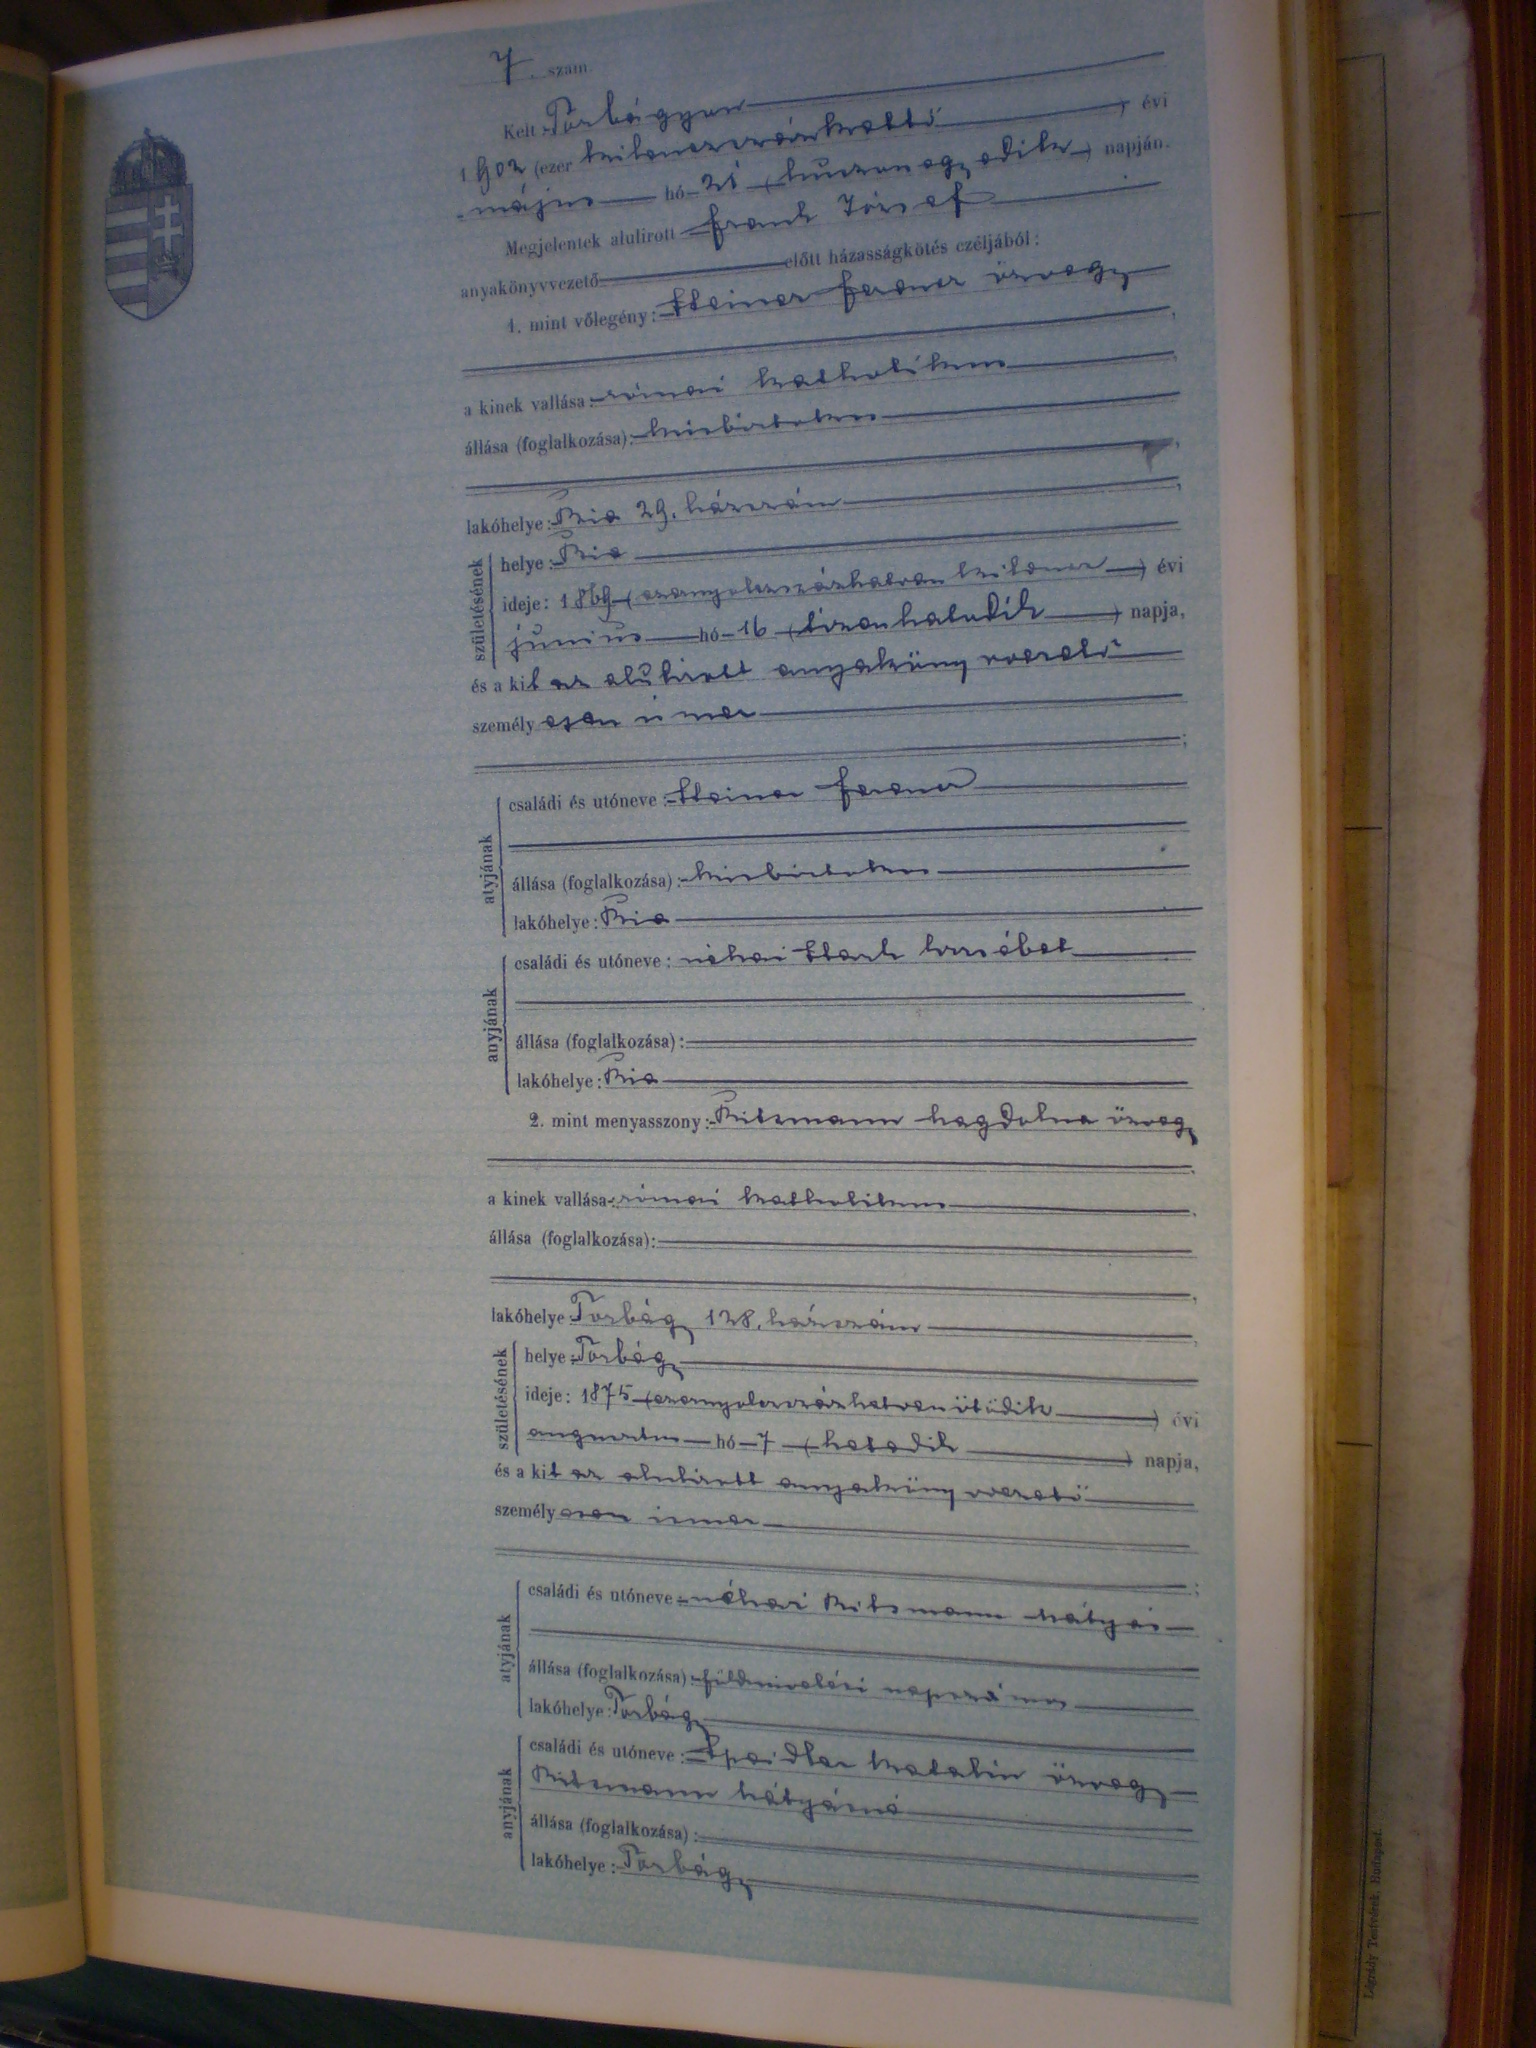 7. szám.
Kelt Torbágyon
1902 (ezer kilenczszázkettő) évi
május hó 21 (huszonegyedik) napján.
Megjelentek alulirott Frank József
anyakönyvvezető előtt házasságkötés czéljából:
1. mint vőlegény: Steiner Ferencz özvegy
a kinek vallása: római katholikus
állása (foglalkozása): kisbirtokos
lakóhelye: Bia 29. házszám
születésének
helye: Bia
ideje: 1869 (ezernyolczszázhatvan kilencz) évi
június hó 16 (tizenhatodik) napja,
és a kit az alulirott anyakönyvvezető
személyesen ismer
;
atyjának
családi és utóneve: Steiner Ferencz
állása (foglalkozása): kisbirtokos
lakóhelye: Bia
anyjának
családi és utóneve: néhai Stark Erzsébet
állása (foglalkozása):
lakóhelye: Bia
2. mint menyasszony: Ritzmann Magdolna özvegy
a kinek vallása: római katholikus
állása (foglalkozása):
lakóhelye: Torbágy 128. házszám
születésének
helye: Torbágy
ideje: 1875 (ezernyolczszázhetvenötödik) évi
augusztus hó 7 (hetedik) napja,
és a kit az alulirott anyakönyvvezető
személyesen ismer
;
atyjának
családi és utóneve: néhai Ritzmann Mátyás
állása (foglalkozása): földmivelési napszámos
lakóhelye: Torbágy
anyjának
családi és utóneve: Speidler Katalin özvegy
Ritzmann Mátyásné
állása (foglalkozása):
lakóhelye: Torbágy
Légrády Testvérek, Budapest.